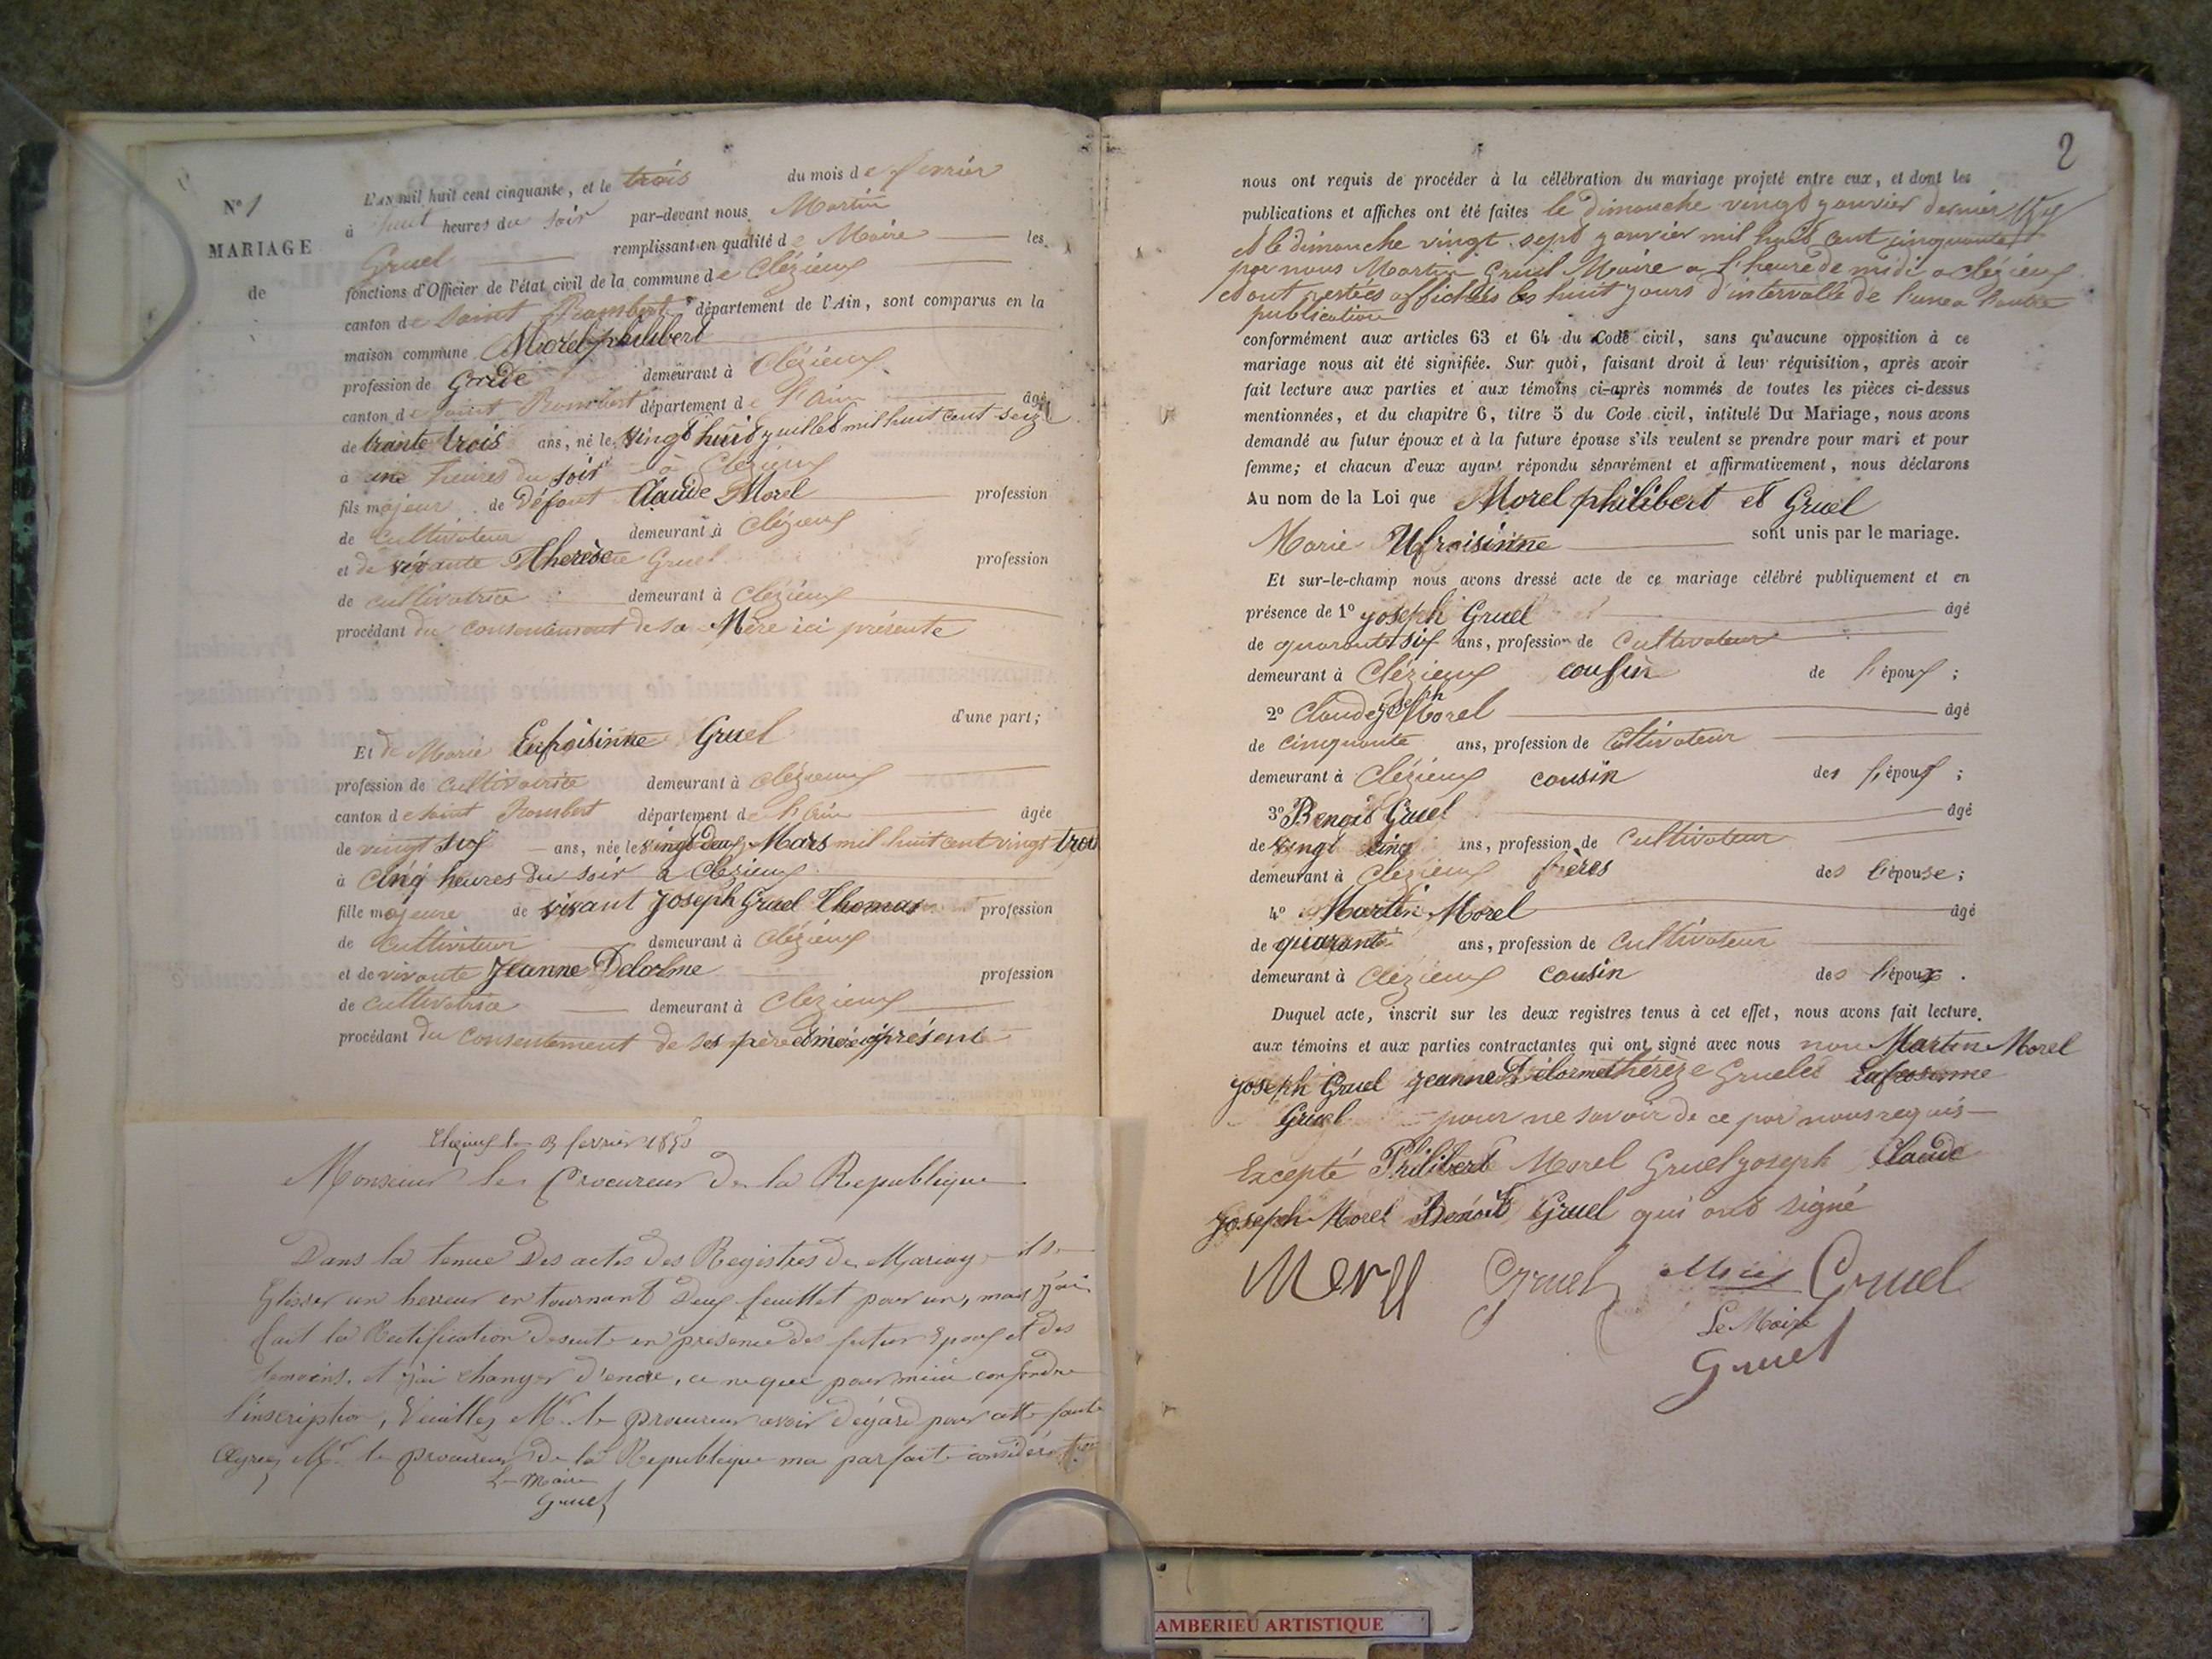 N° 1
MARIAGE
de
L'AN mil huit cent cinquante, et le trois du mois de fevrier
à huit heures du soir par-devant nous Martin
Gruel remplissant en qualité de Maire les
fonctions d'Officier de l'état civil de la commune de Clézieux
canton de Saint Rambert département de l'Ain, sont comparus en la
maison commune Morel philibert
profession de Garde demeurant à Clézieux
canton de Saint Rambert département de l'Ain âgé
de trante trois ans, né le Vingt huit juillet mil huit cent seize
à une heures du soir à Clézieux
fils majeur de Défunt Claude Morel profession
de cultivateur demeurant à Clézieux
et de vivante Therèse Gruel profession
de cultivatrice demeurant à Clézieux
procédant du consentement de sa Mère ici présente
d'une part;
Et de Marie Eufroisinne Gruel
profession de cultivatrice demeurant à Clézieux
canton de Saint Rambert département de l'Ain âgée
de vingt six ans, née le vingt deux Mars mil huit cent vingt trois
à cinq heures du soir à Clézieux
fille majeure de vivant Joseph Gruel Thomas profession
de cultivateur demeurant à Clézieux
et de vivante Jeanne Delorme profession
de cultivatrice demeurant à Clézieux
procédant du consentement de ses père et mère ici présent
Clezieux le 3 fevrier 1850
Monsieur le Procureur de la Republique
Dans la tenue des actes des Registres de Mariage
Glisser un herreur en tournant deux feuillet pour un, mais j'ai
fait la Rectification desuite en presence des futur Epoux et des
temoins, et j'ai changer d'encre, ce ne que pour mieu confondre
l'inscription, Veuillez Mr le procureur avoir d'égard pour cette faute
Agreez Mr le procureur de la Republique ma parfaite considération
Le Maire
Gruel
2
nous ont requis de procéder à la célébration du mariage projeté entre eux, et dont les
publications et affiches ont été faites le dimanche vingt janvier dernier
et le dimanche vingt sept janvier mil huit cent cinquante
par nous Martin Gruel Maire a l'heure de midi a clézieux
et ont restées affichées les huit jours d'intervalle de l'une a l'autre
publication
conformément aux articles 63 et 64 du Code civil, sans qu'aucune opposition à ce
mariage nous ait été signifiée. Sur quoi, faisant droit à leur réquisition, après avoir
fait lecture aux parties et aux témoins ci-après nommés de toutes les pièces ci-dessus
mentionnées, et du chapitre 6, titre 5 du Code civil, intitulé Du Mariage, nous avons
demandé au futur époux et à la future épouse s'ils veulent se prendre pour mari et pour
femme; et chacun d'eux ayant répondu séparément et affirmativement, nous déclarons
Au nom de la Loi que Morel philibert et Gruel
Marie Ufroisinne sont unis par le mariage.
Et sur-le-champ nous avons dressé acte de ce mariage célébré publiquement et en
présence de 1° joseph Gruel âgé
de quarante six ans, profession de Cultivateur
demeurant à Clézieux cousin de l'époux;
2° Claude joseph Morel âgé
de cinquante ans, profession de Cultivateur
demeurant à Clézieux cousin des l'époux;
3° Benoit Gruel âgé
de vingt cinq ans, profession de Cultivateur
demeurant à Clézieux frères des l'épouse;
4° Martin Morel âgé
de quarante ans, profession de Cultivateur
demeurant à Clézieux cousin des l'époux.
Duquel acte, inscrit sur les deux registres tenus à cet effet, nous avons fait lecture
aux témoins et aux parties contractantes qui ont signé avec nous non Martin Morel
joseph Gruel jeanne Delorme thérèze Gruel et Eufrosinne
Gruel pour ne savoir de ce par nous requis
Excepté Philibert Morel Gruel joseph Claude
joseph Morel Benoit Gruel qui ont signé
Morel Gruel Gruel
Le Maire
Gruel
AMBERIEU ARTISTIQUE